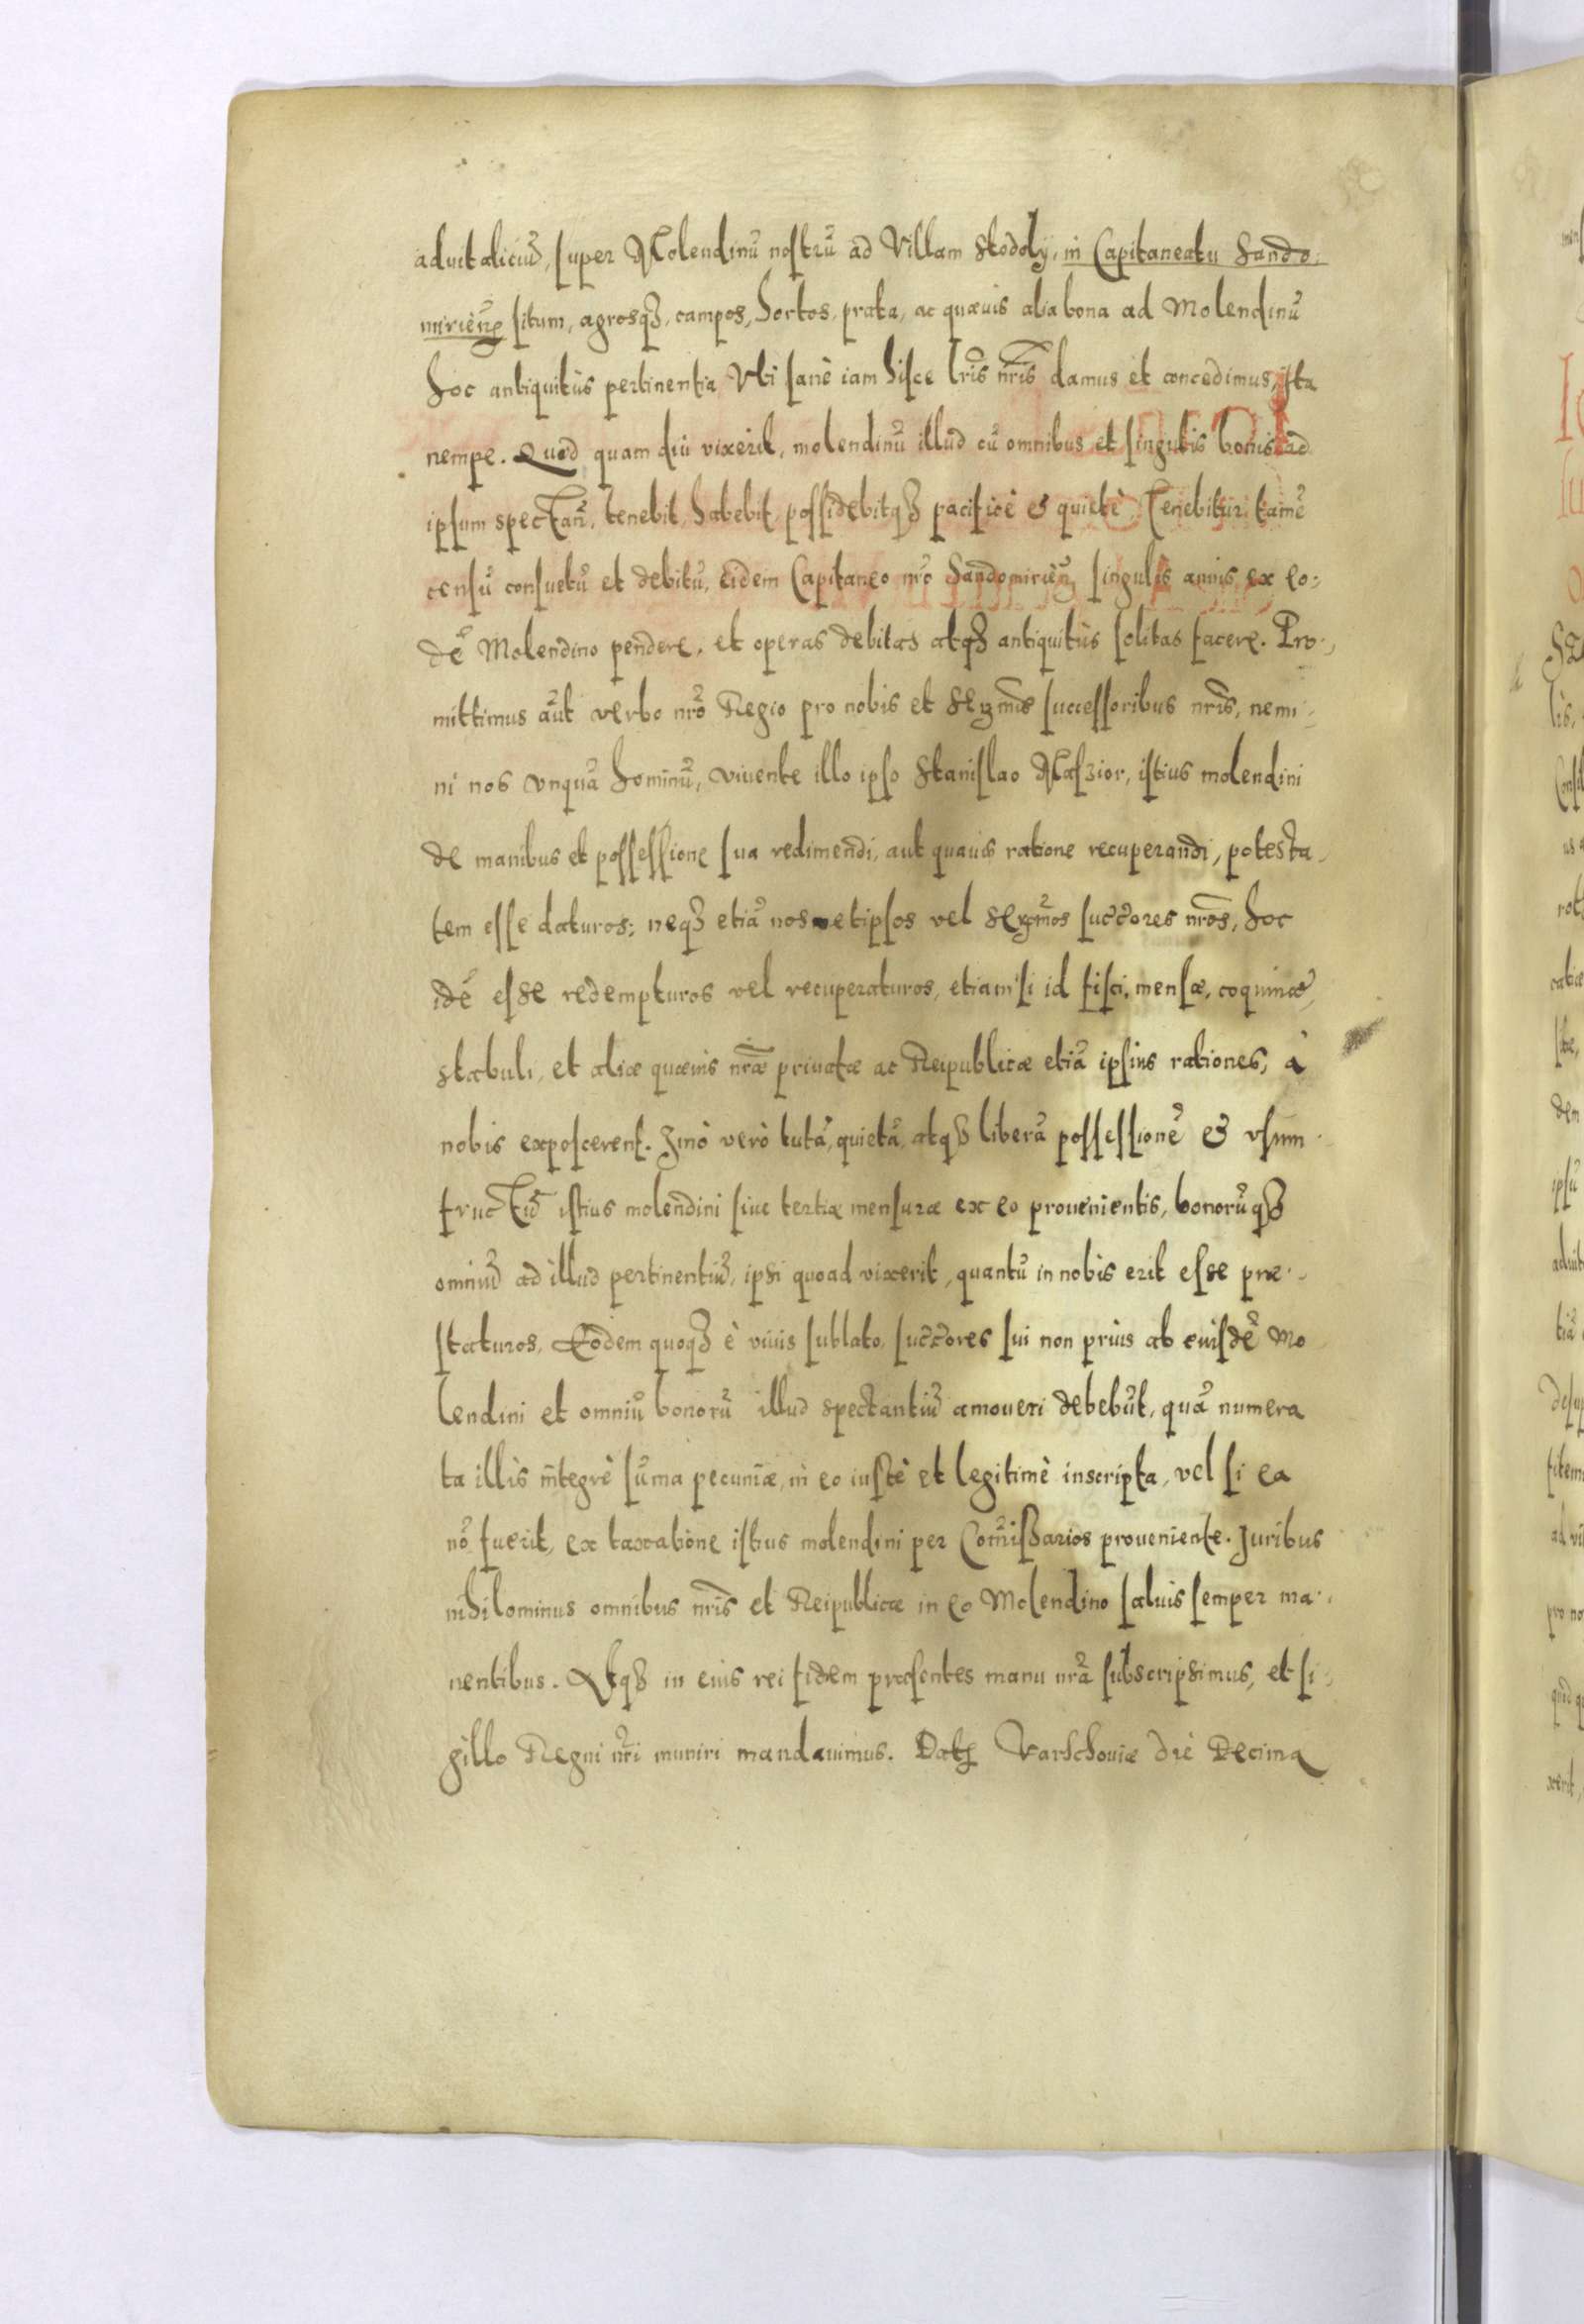 aduitaliciũ, super Molendinũ nostrũ ad Villam Stodoly, in Capitaneatu Sando-
mirień situm, agrosq₃, campos, hortos, prata, ac quæuis alia bona ad Molendinũ
hoc antiquitùs pertinentia Vti sanè iam hisce lr̃is nr̃is damus et concedimus, ita
nempe. Quod quam diù vixerit, molendinũ illud cũ omnibus et singulis bonis ad
ipsum spectañ, tenebit, habebit, possidebitq₃ pacificè & quietè Tenebitur tamẽ
censũ consuetũ et debitũ, eidem Capitaneo nr̃o Sandomirień singulis annis ex eo-
dẽ Molendino pendere, et operas debitas atq₃ antiquitùs solitas facere. Pro-
mittimus aũt verbo nr̃o Regio pro nobis et Serẽnmis successoribus nr̃is, nemi-
ni nos vnquã hominũ, viuente illo ipso Stanislao Maszior, istius molendini
de manibus et possessione sua redimendi, aut quauis ratione recuperandi, potesta-
tem esse daturos; neq₃ etiã nosmetipsos vel Serẽnmos succc̃ores nr̃os, hoc
idẽ esse redempturos vel recuperaturos, etiam si id fisci, mensæ, coquinæ,
stabuli, et aliæ quæuis nr̃æ priuatæ ac Reipublicæ etiã ipsius rationes, à
nobis exposcerent. Imò verò tutã, quietã, atq₃ liberã possessionẽ & vsum-
fructũ istius molendini siue tertiæ mensuræ ex eo prouenientis, bonorũq₃
omniũ ad illud pertinentiũ, ipsi quoad vixerit, quantũ in nobis erit esse præ-
staturos. Eodem quoq₃ è viuis sublato, succc̃ores sui non priùs ab eiusdẽ Mo
lendini et omniũ bonorũ illud spectantiũ amoueri debebũt, quã numera
ta illis integrè sũma pecuniæ, in eo iustè et legitimè inscripta, vel si ea
nõ fuerit, ex taxatione istius molendini per Com̃issarios proueniente. Juribus
nihilominus omnibus nr̃is et Reipublicæ in eo Molendino saluis semper ma-
nentibus. Atq₃ in eius rei fidem præsentes manu nr̃ã subscripsimus, et si-
gillo Regni nr̃i muniri mandauimus. Dat Varschouiæ die Decima